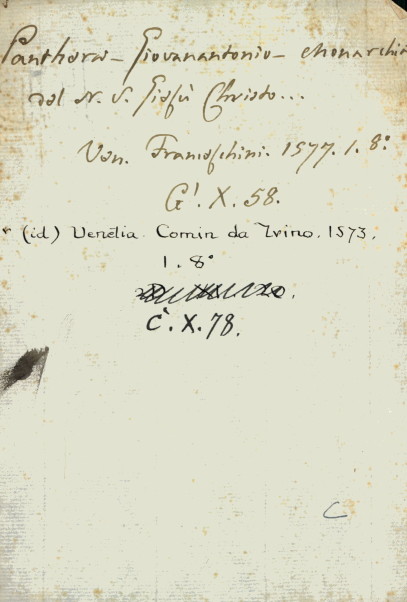 Panthera - Giovanantonio - Monarchia
del N. S. Giesù Christo...
Ven. Franceschini. 1577. 1. 8°
G¹. X. 58.
* (id) Venetia Comin da Trino. 1573.
1. 8°
C. X. 78.
C